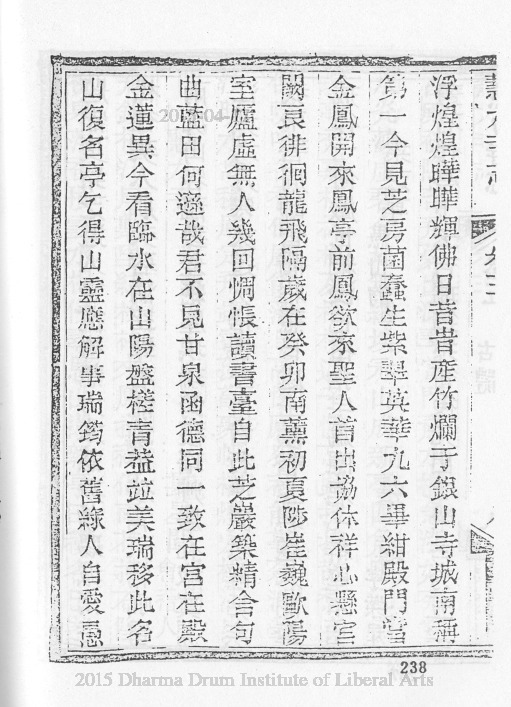 浮煌煌曄曄輝佛日昔昔産竹爛于銀山寺城南稱
第一今見芝房菌蠢生紫翠英華九六畢紺殿門當
金鳳開來鳳亭前鳳欲來聖人首出協休祥心懸宫
闕良徘徊龍飛隔歲在癸卯南薰初夏陟崔巍歐陽
室廬虛無人幾回惆悵讀書臺自此芝巖築精舍句
曲藍田何遜哉君不見甘泉函德同一致在宫在殿
金蓮異今看臨水在山陽盤槎青益竝美瑞移此名
山復名亭乞得山靈應解事瑞筠依舊綠人自愛
238
2015 Dharma Drum Institute of Liberal Arts